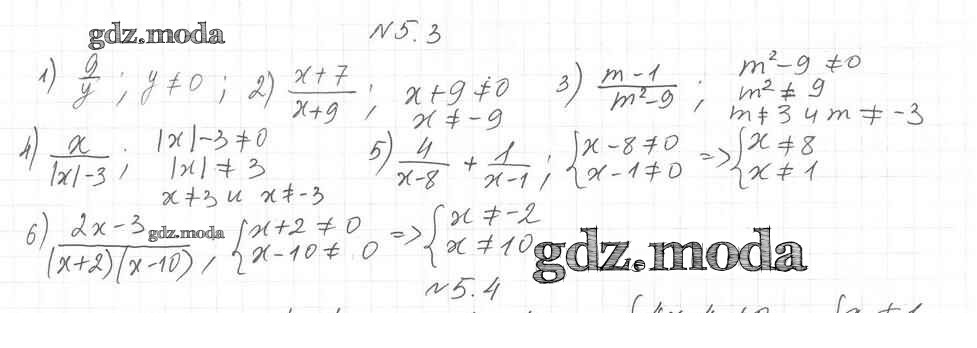 gdz.moda
№5.3
1) 9/y ; y ≠ 0 ; 2) (x+7)/(x+9) ; x+9 ≠ 0
x ≠ -9
3) (m-1)/(m²-9) ; m²-9 ≠ 0
m² ≠ 9
m ≠ 3 и m ≠ -3
4) x/(|x|-3) ; |x|-3 ≠ 0
|x| ≠ 3
x ≠ 3 и x ≠ -3
5) 4/(x-8) + 1/(x-1) ; { x-8 ≠ 0 => { x ≠ 8
x-1 ≠ 0 x ≠ 1
6) (2x-3)/((x+2)(x-10)) , { x+2 ≠ 0 => { x ≠ -2
x-10 ≠ 0 x ≠ 10
gdz.moda
gdz.moda
№5.4